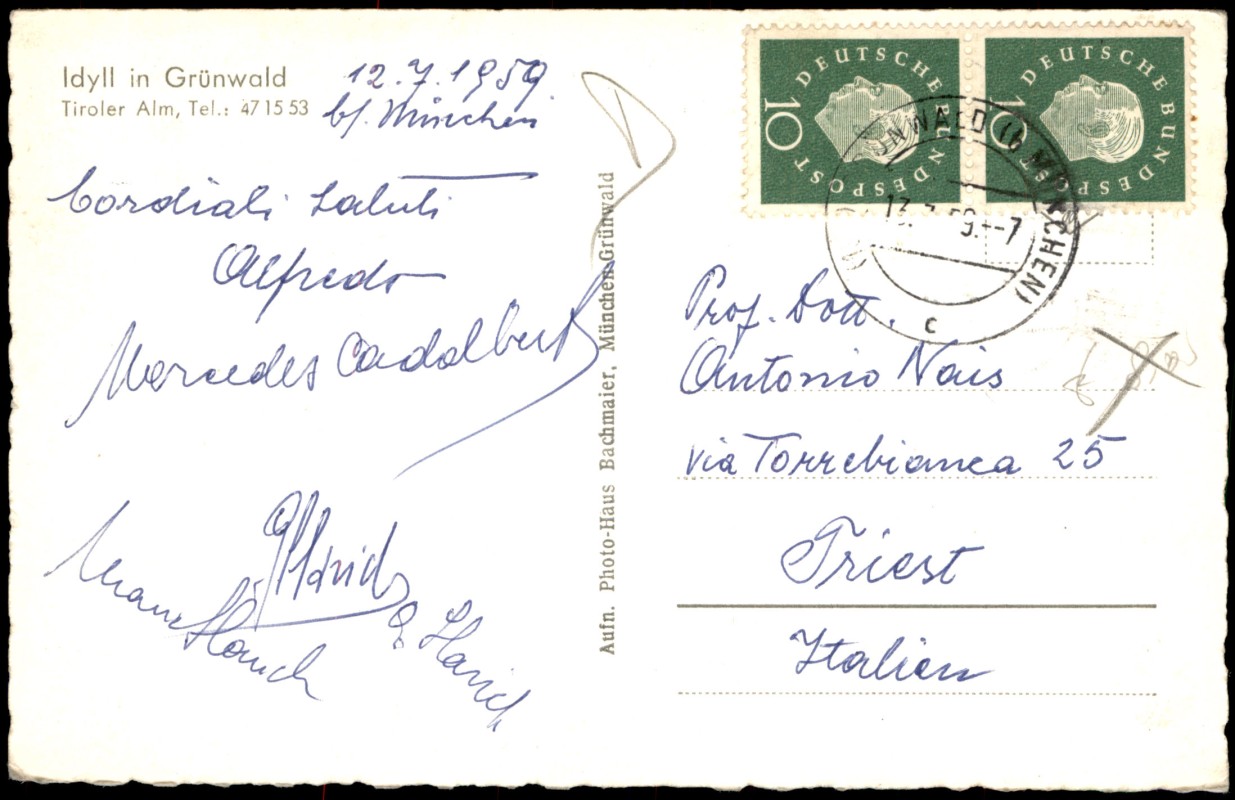 Idyll in Grünwald
Tiroler Alm, Tel.: 47 15 53
12.7.1959.
b/. München
Cordiali saluti
Alfredo
Mercedes Cadalbert
Aufn. Photo-Haus Bachmaier, München-Grünwald
DEUTSCHE BUNDESPOST
10
DEUTSCHE BUNDESPOST
10
GRÜNWALD (b MÜNCHEN)
13.7.59.--7
c
Prof. Dott.
Antonio Nais
via Torrebianca 25
Triest
Italien